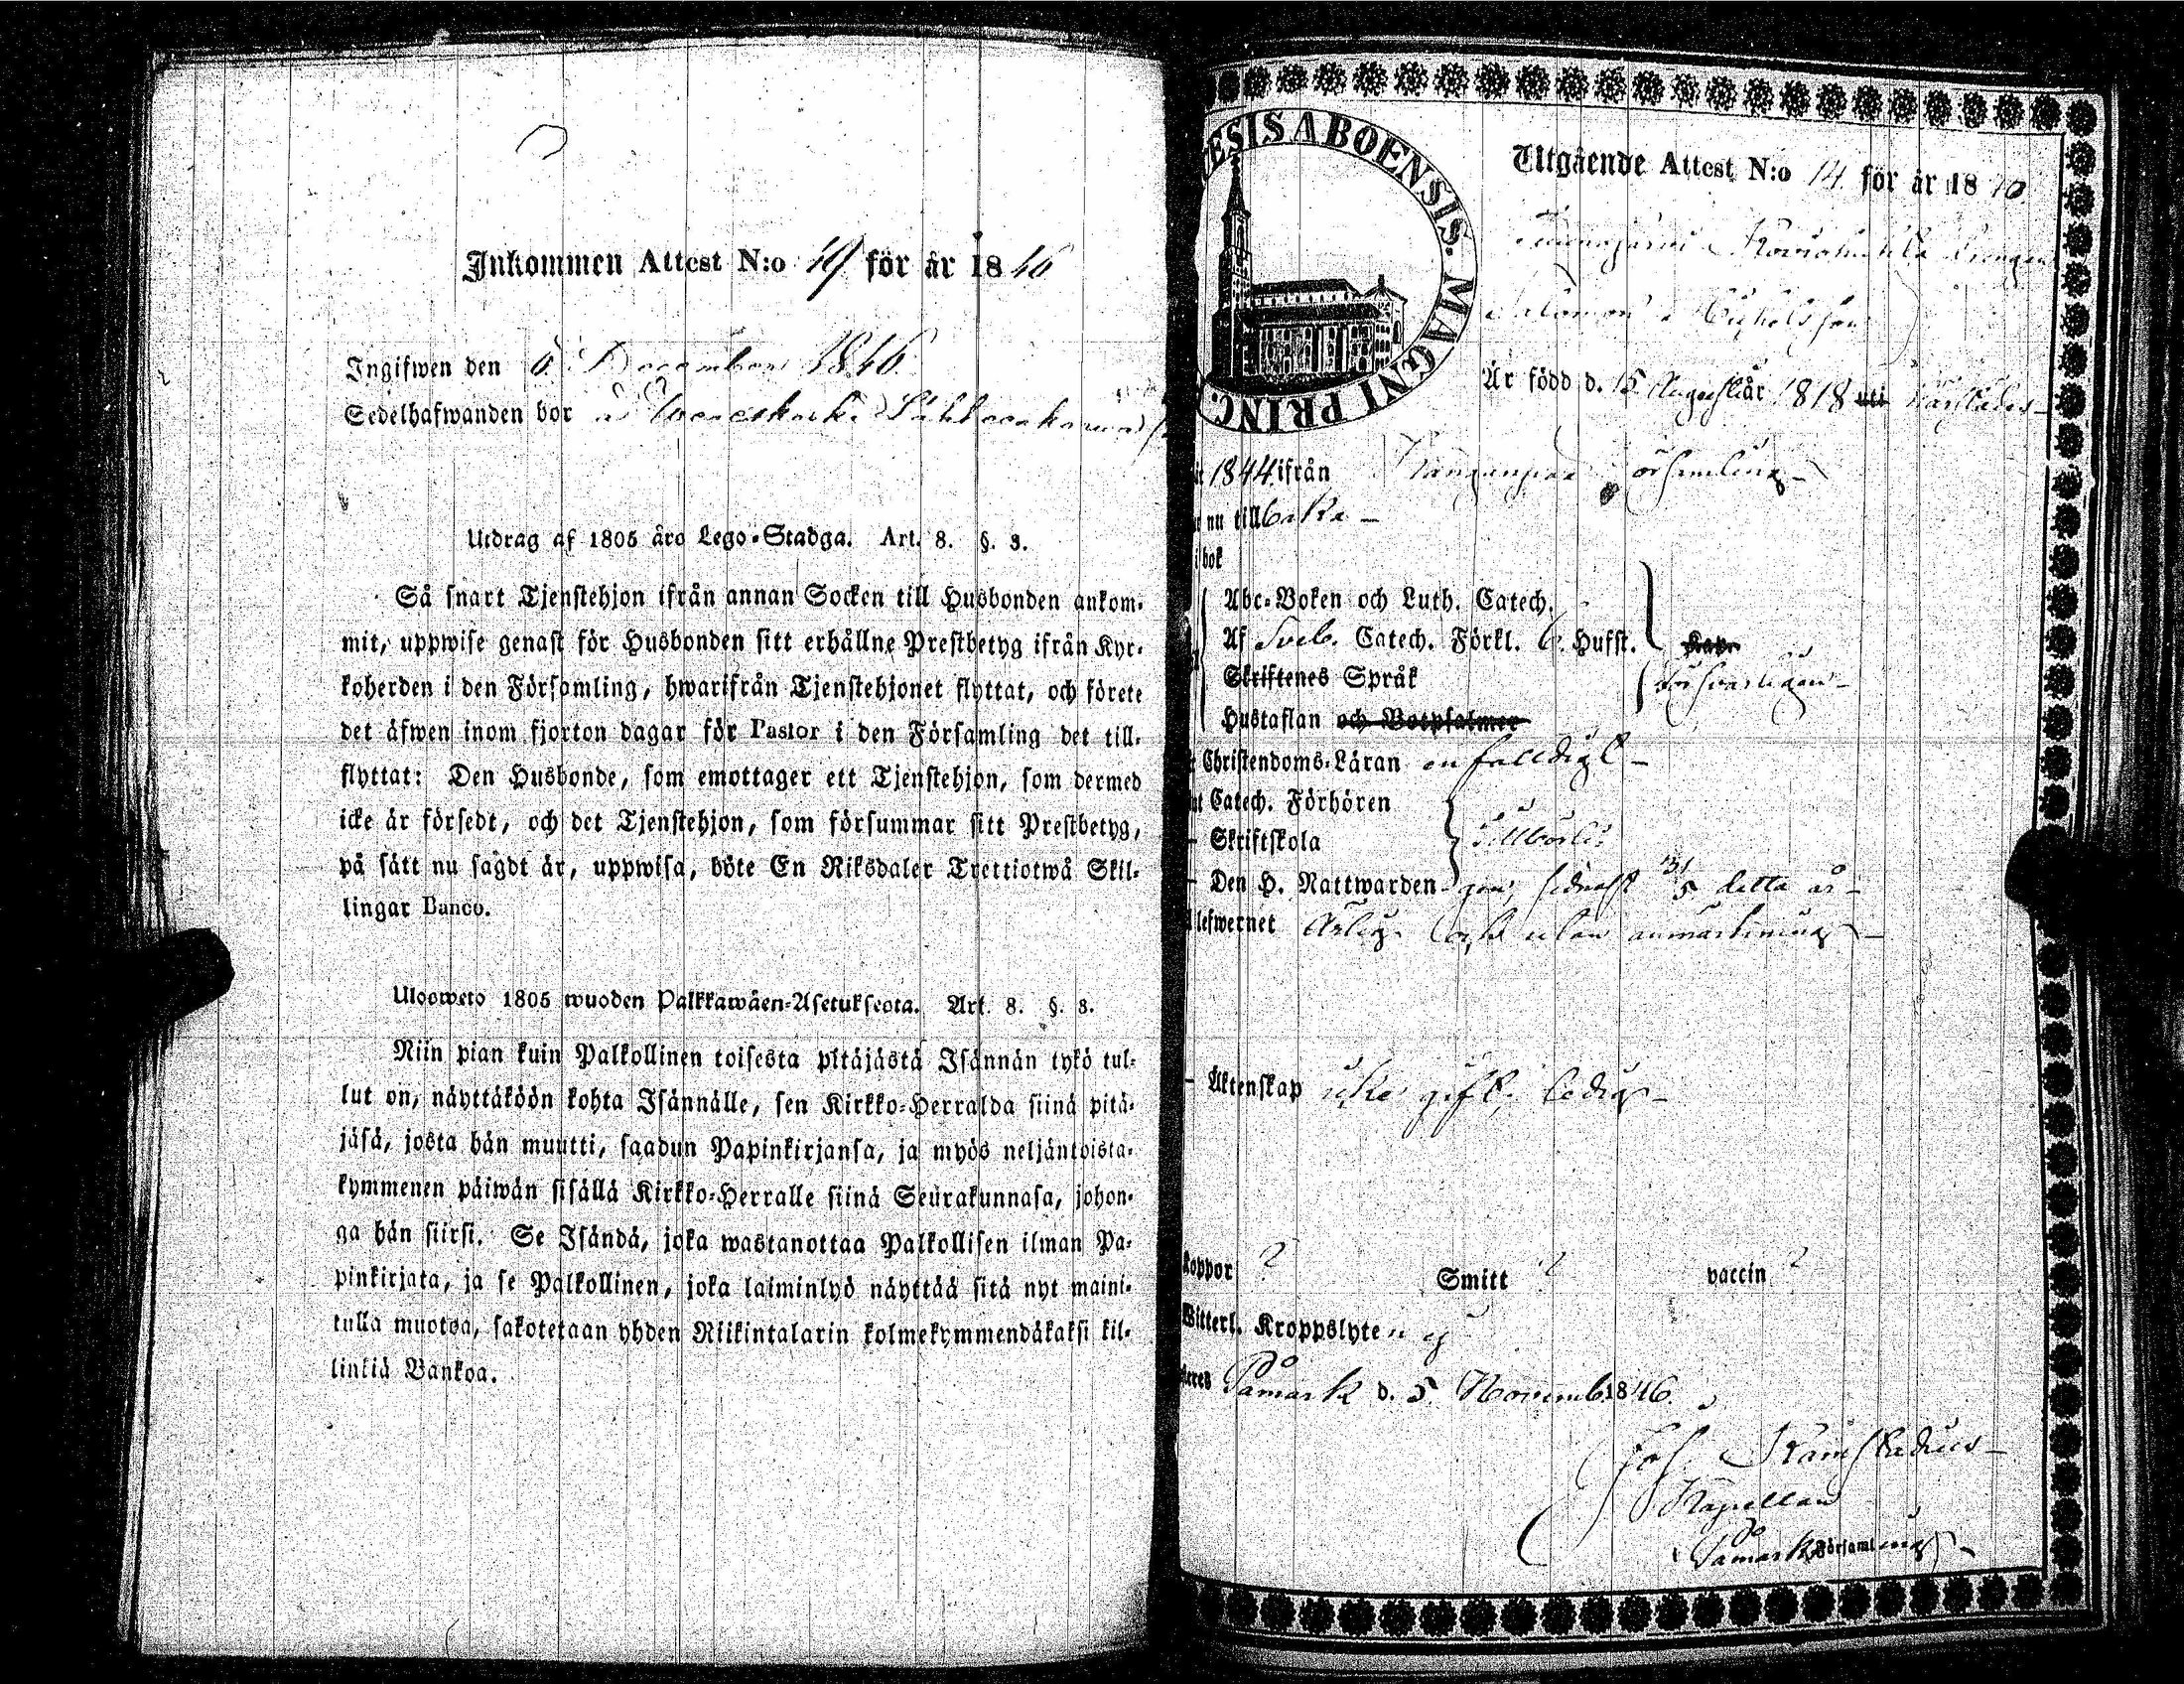 Inkommen Attest N:o 19 för år 1846
Ingifwen den 6 December 1846
Sedelhafwanden bor å
Utdrag af 1805 års Lego-Stadga. Art. 8. §. 3.
Så snart Tjenstehjon ifrån annan Socken till Husbonden ankom-
mit, uppwise genast för Husbonden sitt erhållne Prestbetyg ifrån Kyr-
koherden i den Församling, hwarifrån Tjenstehjonet flyttat, och förete
det äfwen inom fjorton dagar för Pastor i den Församling det till-
flyttat: Den Husbonde, som emottager ett Tjenstehjon, som dermed
icke är försedt, och det Tjenstehjon, som försummar sitt Prestbetyg,
på sätt nu sagdt är, uppwisa, böte En Riksdaler Trettiotwå Skil-
lingar Banco.
Ulosweto 1805 wuoden Palkkawäen-Asetuksesta. Art. 8. §. 3.
Niin pian kuin Palkollinen toisesta pitäjästä Isännän tykö tul-
lut on, näyttäköön kohta Isännälle, sen Kirkko-Herralda siinä pitä-
jäsä, josta hän muutti, saadun Papinkirjansa, ja myös neljäntoista-
kymmenen päiwän sisällä Kirkko-Herralle siinä Seurakunnasa, johon-
ga hän siirsi. Se Isändä, joka wastanottaa Palkollisen ilman Pa-
pinkirjata, ja se Palkollinen, joka laiminlyö näyttää sitä nyt maini-
tulla muotoa, sakotetaan yhden Riikintalarin kolmekymmendäkaksi kil-
linkiä Bankoa.
ESIS ABOENSIS. MAGNI PRINC.
Utgående Attest N:o 14 för år 18
Salomon Michelsson
Är född d. 15 Augusti år 1818 uti
1844 ifrån Kangaspää Församling
nu tillbaka
i bok
Abc-Boken och Luth. Catech.
Af Sveb. Catech. Förkl. 6. Hufst.
Skriftenes Språk försvarligen
Hustaflan och Botpsalmer
Christendoms-Läran enfalldigt
Catech. Förhören
Skriftskola Tillbörli-
Den H. Nattwarden gen, sednast 31/5 detta år
lefwernet Ärlig och utan anmärkning
Äktenskap icke gift, ledig
Koppor ? Smitt ? vaccin ?
Witterl. Kroppslyten ej
Påmark d. 5 Novemb. 1846.
Joh.
Kapellan
Påmark Församling